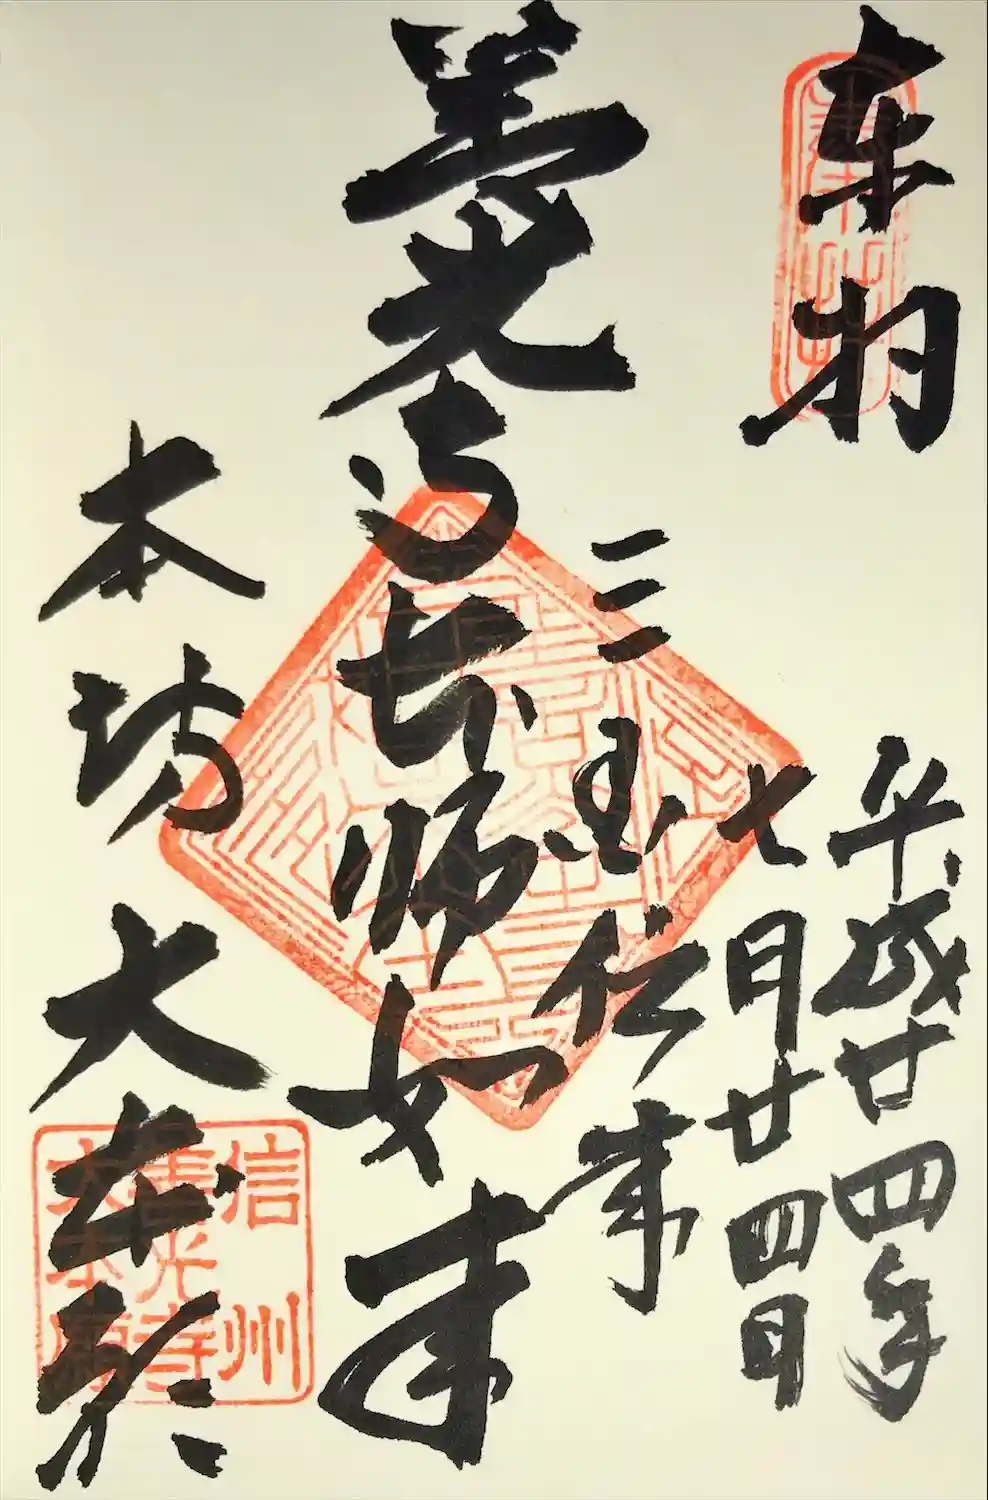 奉拝
平成廿四年
七月廿四日
三国伝来
善光寺本師如来
本坊大本願
信州
善光寺
大本願